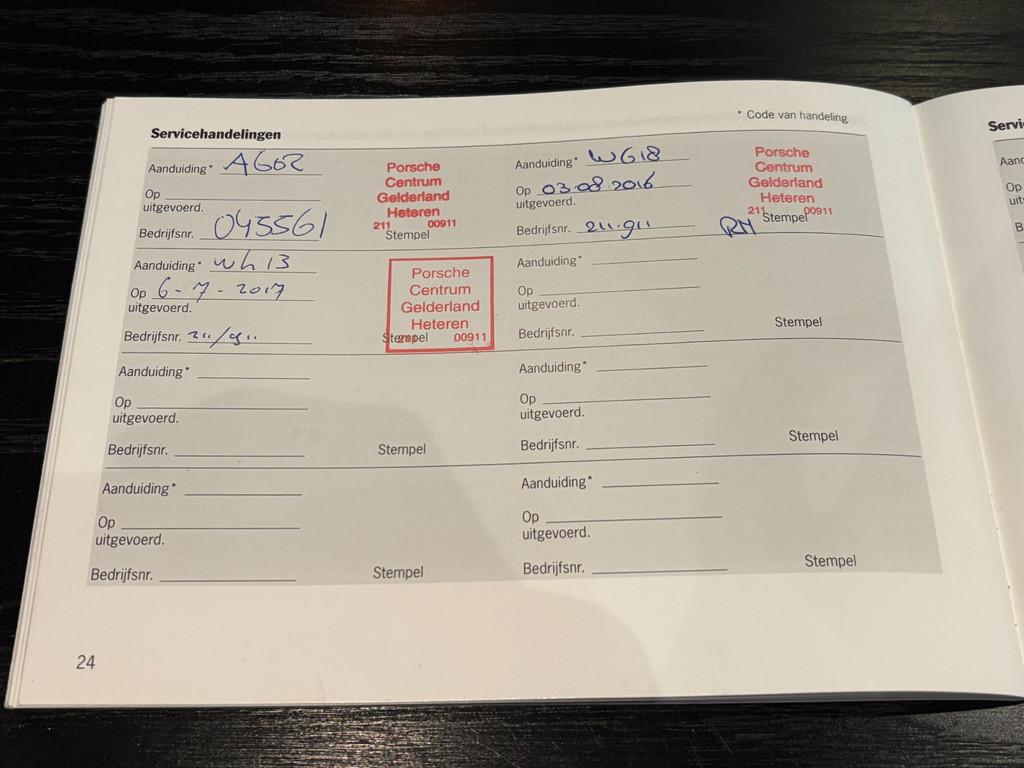 * Code van handeling
Servicehandelingen
Aanduiding* AG02
Op
uitgevoerd.
Bedrijfsnr. 045561
Porsche
Centrum
Gelderland
Heteren
211 00911
Stempel
Aanduiding* WG18
Op 03.08.2016
uitgevoerd.
Bedrijfsnr. 211.911
Porsche
Centrum
Gelderland
Heteren
211 00911
Stempel
RM
Aanduiding* Wh 13
Op 6-7-2017
uitgevoerd.
Bedrijfsnr. 211/911
Porsche
Centrum
Gelderland
Heteren
00911
Stempel
Aanduiding*
Op
uitgevoerd.
Bedrijfsnr.
Stempel
Aanduiding*
Op
uitgevoerd.
Bedrijfsnr.
Stempel
Aanduiding*
Op
uitgevoerd.
Bedrijfsnr.
Stempel
Aanduiding*
Op
uitgevoerd.
Bedrijfsnr.
Stempel
Aanduiding*
Op
uitgevoerd.
Bedrijfsnr.
Stempel
24